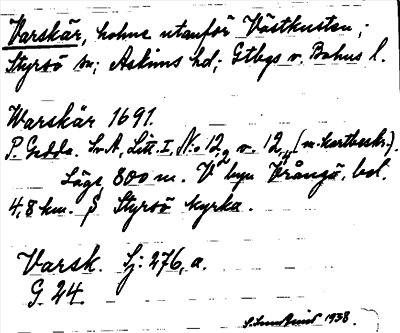 Varskär, holme utanför Västkusten;
Styrsö sn; Askims hd; Gtbgs o. Bohus l.
Warskär 1691.
P. Gedda. Lv. A, Litt. I, No 12, o. 12, (m. kartbeskr.).
Läge, 800 m. V byn Vrångö, bel.
4,8 km. S Styrsö kyrka.
Varsk. Sj: 276, a.
G. 24.
1938.